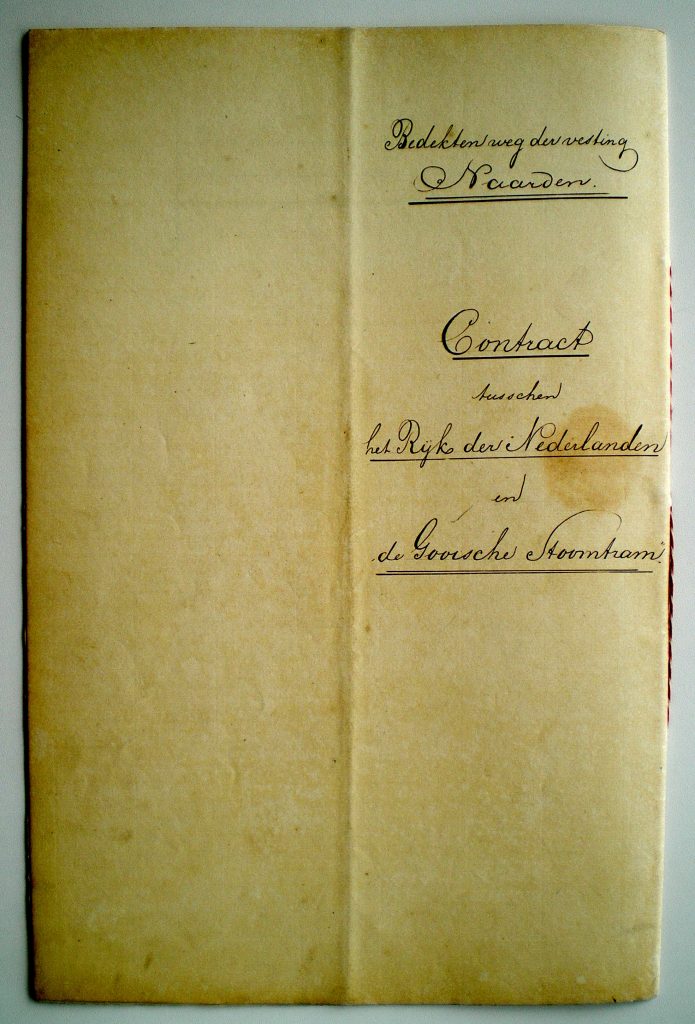 Bedekten weg der vesting
Naarden.
Contract
tusschen
het Rijk der Nederlanden
en
de Gooische Stoomtram".